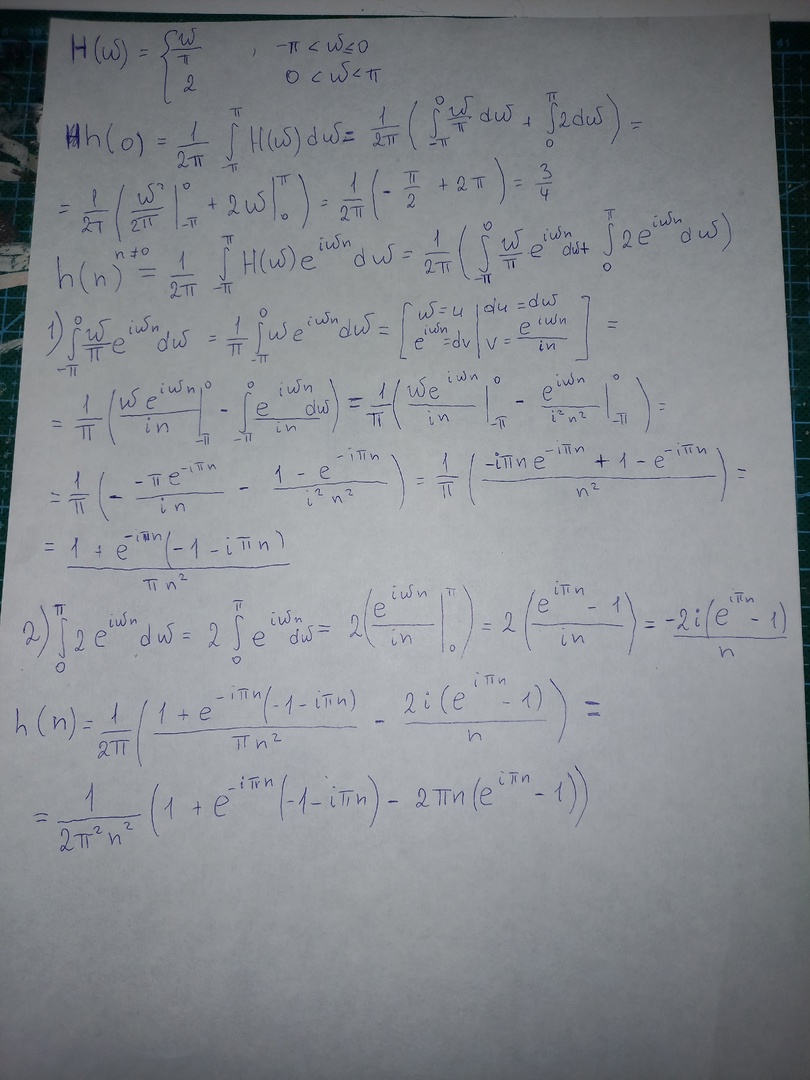 H(ω) = { ω/π , -π < ω ≤ 0
2 0 < ω < π
h(0) = 1/2π ∫_{-π}^{π} H(ω)dω = 1/2π (∫_{-π}^{0} ω/π dω + ∫_{0}^{π} 2dω) =
= 1/2π (ω²/2π |_{-π}^{0} + 2ω|_{0}^{π}) = 1/2π (-π/2 + 2π) = 3/4
h(n) =^{n≠0} 1/2π ∫_{-π}^{π} H(ω)e^{iωn} dω = 1/2π (∫_{-π}^{0} ω/π e^{iωn} dω + ∫_{0}^{π} 2e^{iωn} dω)
1) ∫_{-π}^{0} ω/π e^{iωn} dω = 1/π ∫_{-π}^{0} ωe^{iωn} dω = [ω=u | du=dω
e^{iωn}=dv | v = e^{iωn}/in] =
= 1/π (ωe^{iωn}/in |_{-π}^{0} - ∫_{-π}^{0} e^{iωn}/in dω) = 1/π (ωe^{iωn}/in |_{-π}^{0} - e^{iωn}/i²n² |_{-π}^{0}) =
= 1/π (- -πe^{-iπn}/in - (1 - e^{-iπn})/i²n²) = 1/π ((-iπn e^{-iπn} + 1 - e^{-iπn})/n²) =
= (1 + e^{-iπn}(-1 - iπn))/πn²
2) ∫_{0}^{π} 2e^{iωn} dω = 2 ∫_{0}^{π} e^{iωn} dω = 2(e^{iωn}/in |_{0}^{π}) = 2((e^{iπn} - 1)/in) = -2i(e^{iπn} - 1)/n
h(n) = 1/2π ((1 + e^{-iπn}(-1 - iπn))/πn² - 2i(e^{iπn} - 1)/n) =
= 1/2π²n² (1 + e^{-iπn}(-1 - iπn) - 2πn(e^{iπn} - 1))